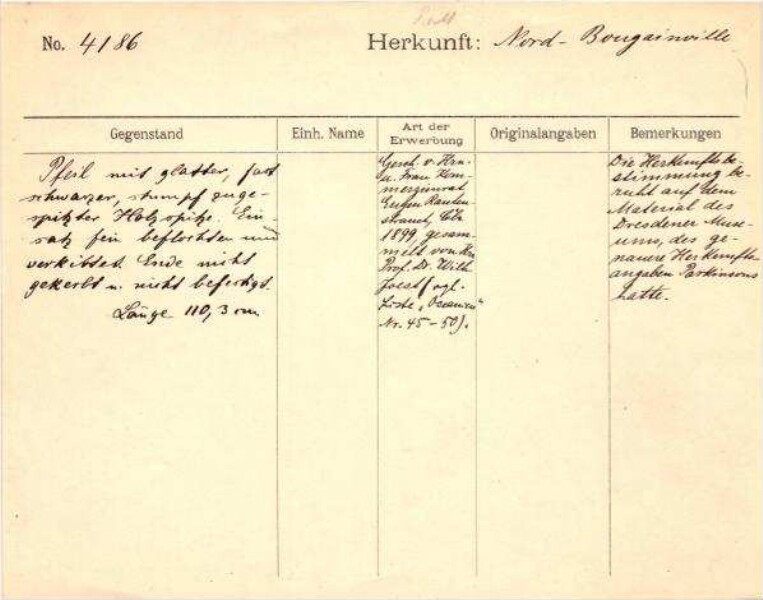 No. 4186
Herkunft: Nord-Bougainville
Gegenstand
Einh. Name
Art der Erwerbung
Originalangaben
Bemerkungen
Pfeil mit glatter, fast
schwarzer, stumpf zuge-
spitzter Holzspitze. Ein-
satz fein beflochten und
verkittet. Ende nicht
gekerbt u. nicht befestigt.
Länge 110,3 cm
Gesch. v. Hrn.
u. Frau Kom-
merzienrat
Eugen Rauten-
strauch, Cöln
1899, gesam-
melt von Hrn
Prof. Dr. Wilh.
Joest (vgl.
Liste „Oceanien"
Nr. 45-50).
Die Herkunftsbe-
stimmung be-
ruht auf dem
Material des
Dresdener Muse-
ums, des ge-
nauere Herkunfts-
angaben Parkinsons
hatte.